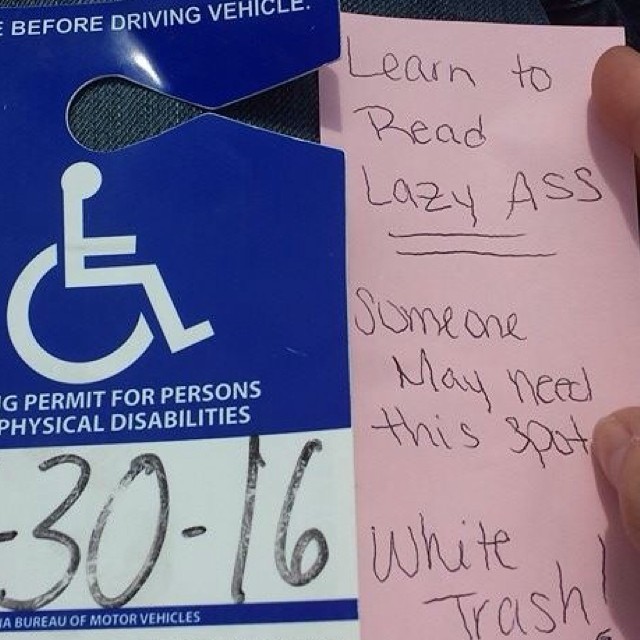 BEFORE DRIVING VEHICLE.
PERMIT FOR PERSONS
PHYSICAL DISABILITIES
-30-16
BUREAU OF MOTOR VEHICLES
Learn to
Read
Lazy ASS
Someone
May need
this spot
White
Trash!